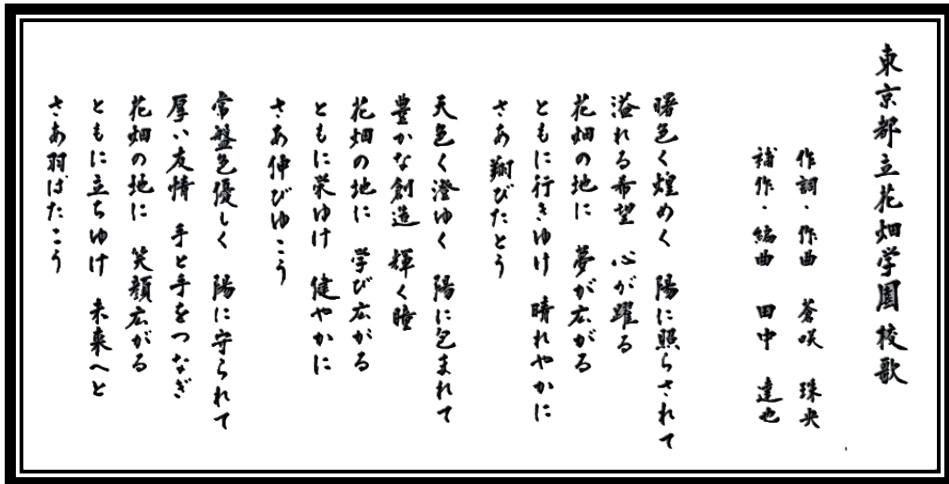 東京都立花畑学園校歌
作詞・作曲　蒼咲　珠央
補作・編曲　田中　達也
曙色く煌めく　陽に照らされて
溢れる希望　心が躍る
花畑の地に　夢が広がる
ともに行きゆけ　晴れやかに
さあ翔びたとう
天色く澄ゆく　陽に包まれて
豊かな創造　輝く瞳
花畑の地に　学び広がる
ともに栄ゆけ　健やかに
さあ伸びゆこう
常盤色優しく　陽に守られて
厚い友情　手と手をつなぎ
花畑の地に　笑顔広がる
ともに立ちゆけ　未来へと
さあ羽ばたこう